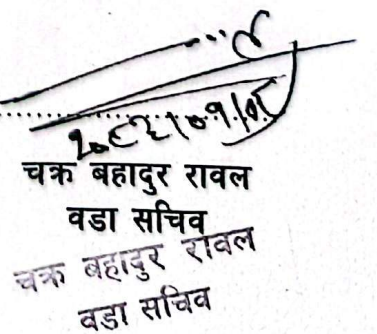 २०८२।०१।०८
चक्र बहादुर रावल
वडा सचिव
चक्र बहादुर रावल
वडा सचिव